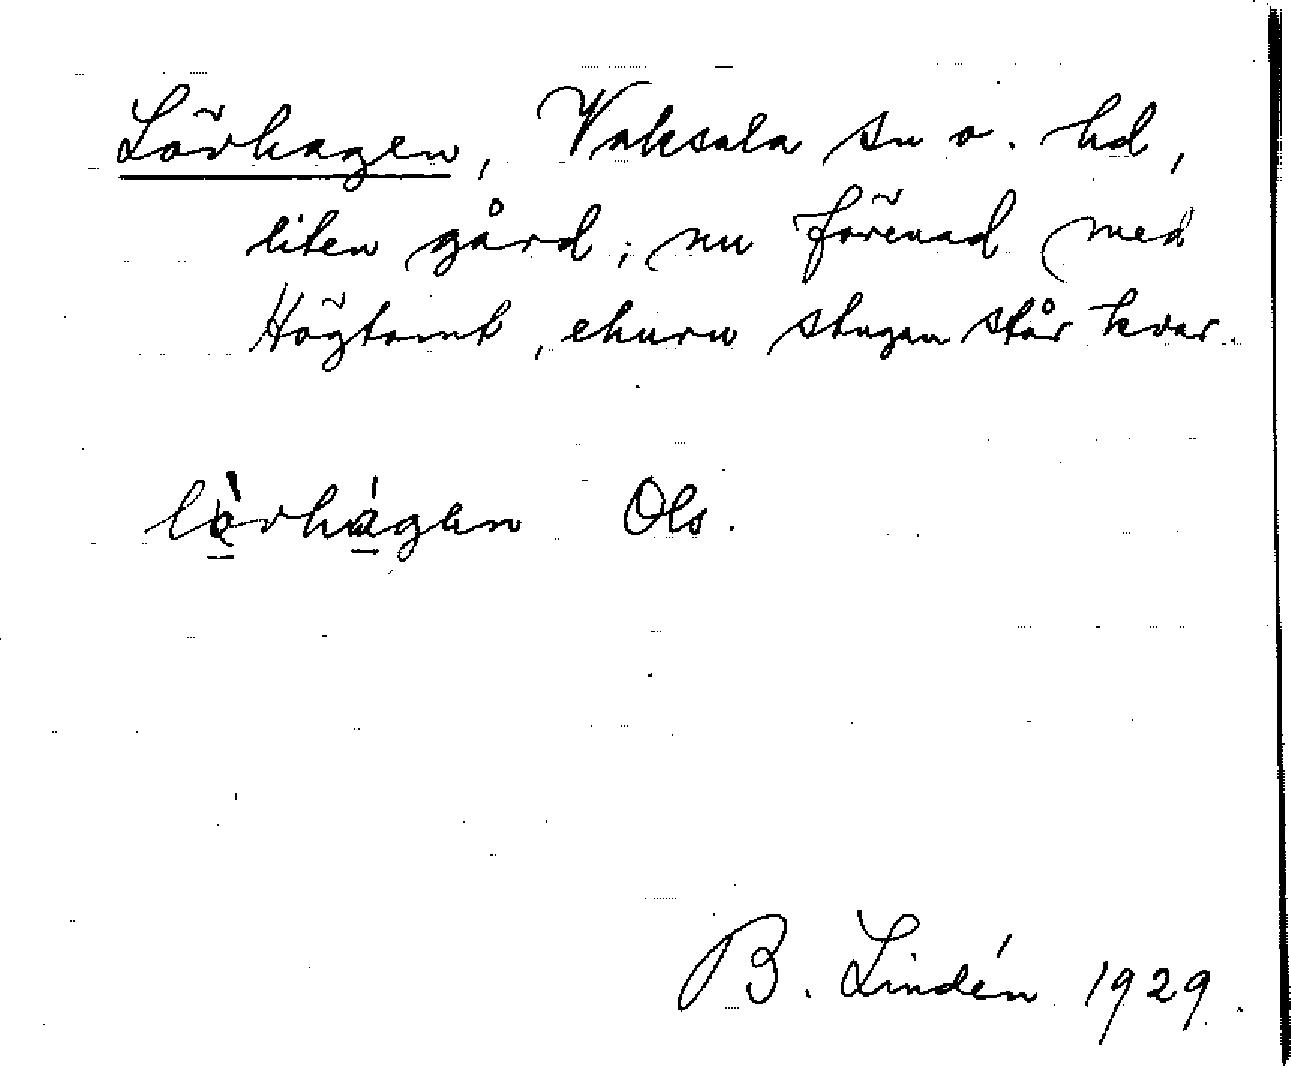 Lövhagen, Vaksala sn o. hd,
liten gård; nu förenad med
Högtomt, ehuru stugan står kvar.
lòvhágen Ols.
B. Lindén 1929.